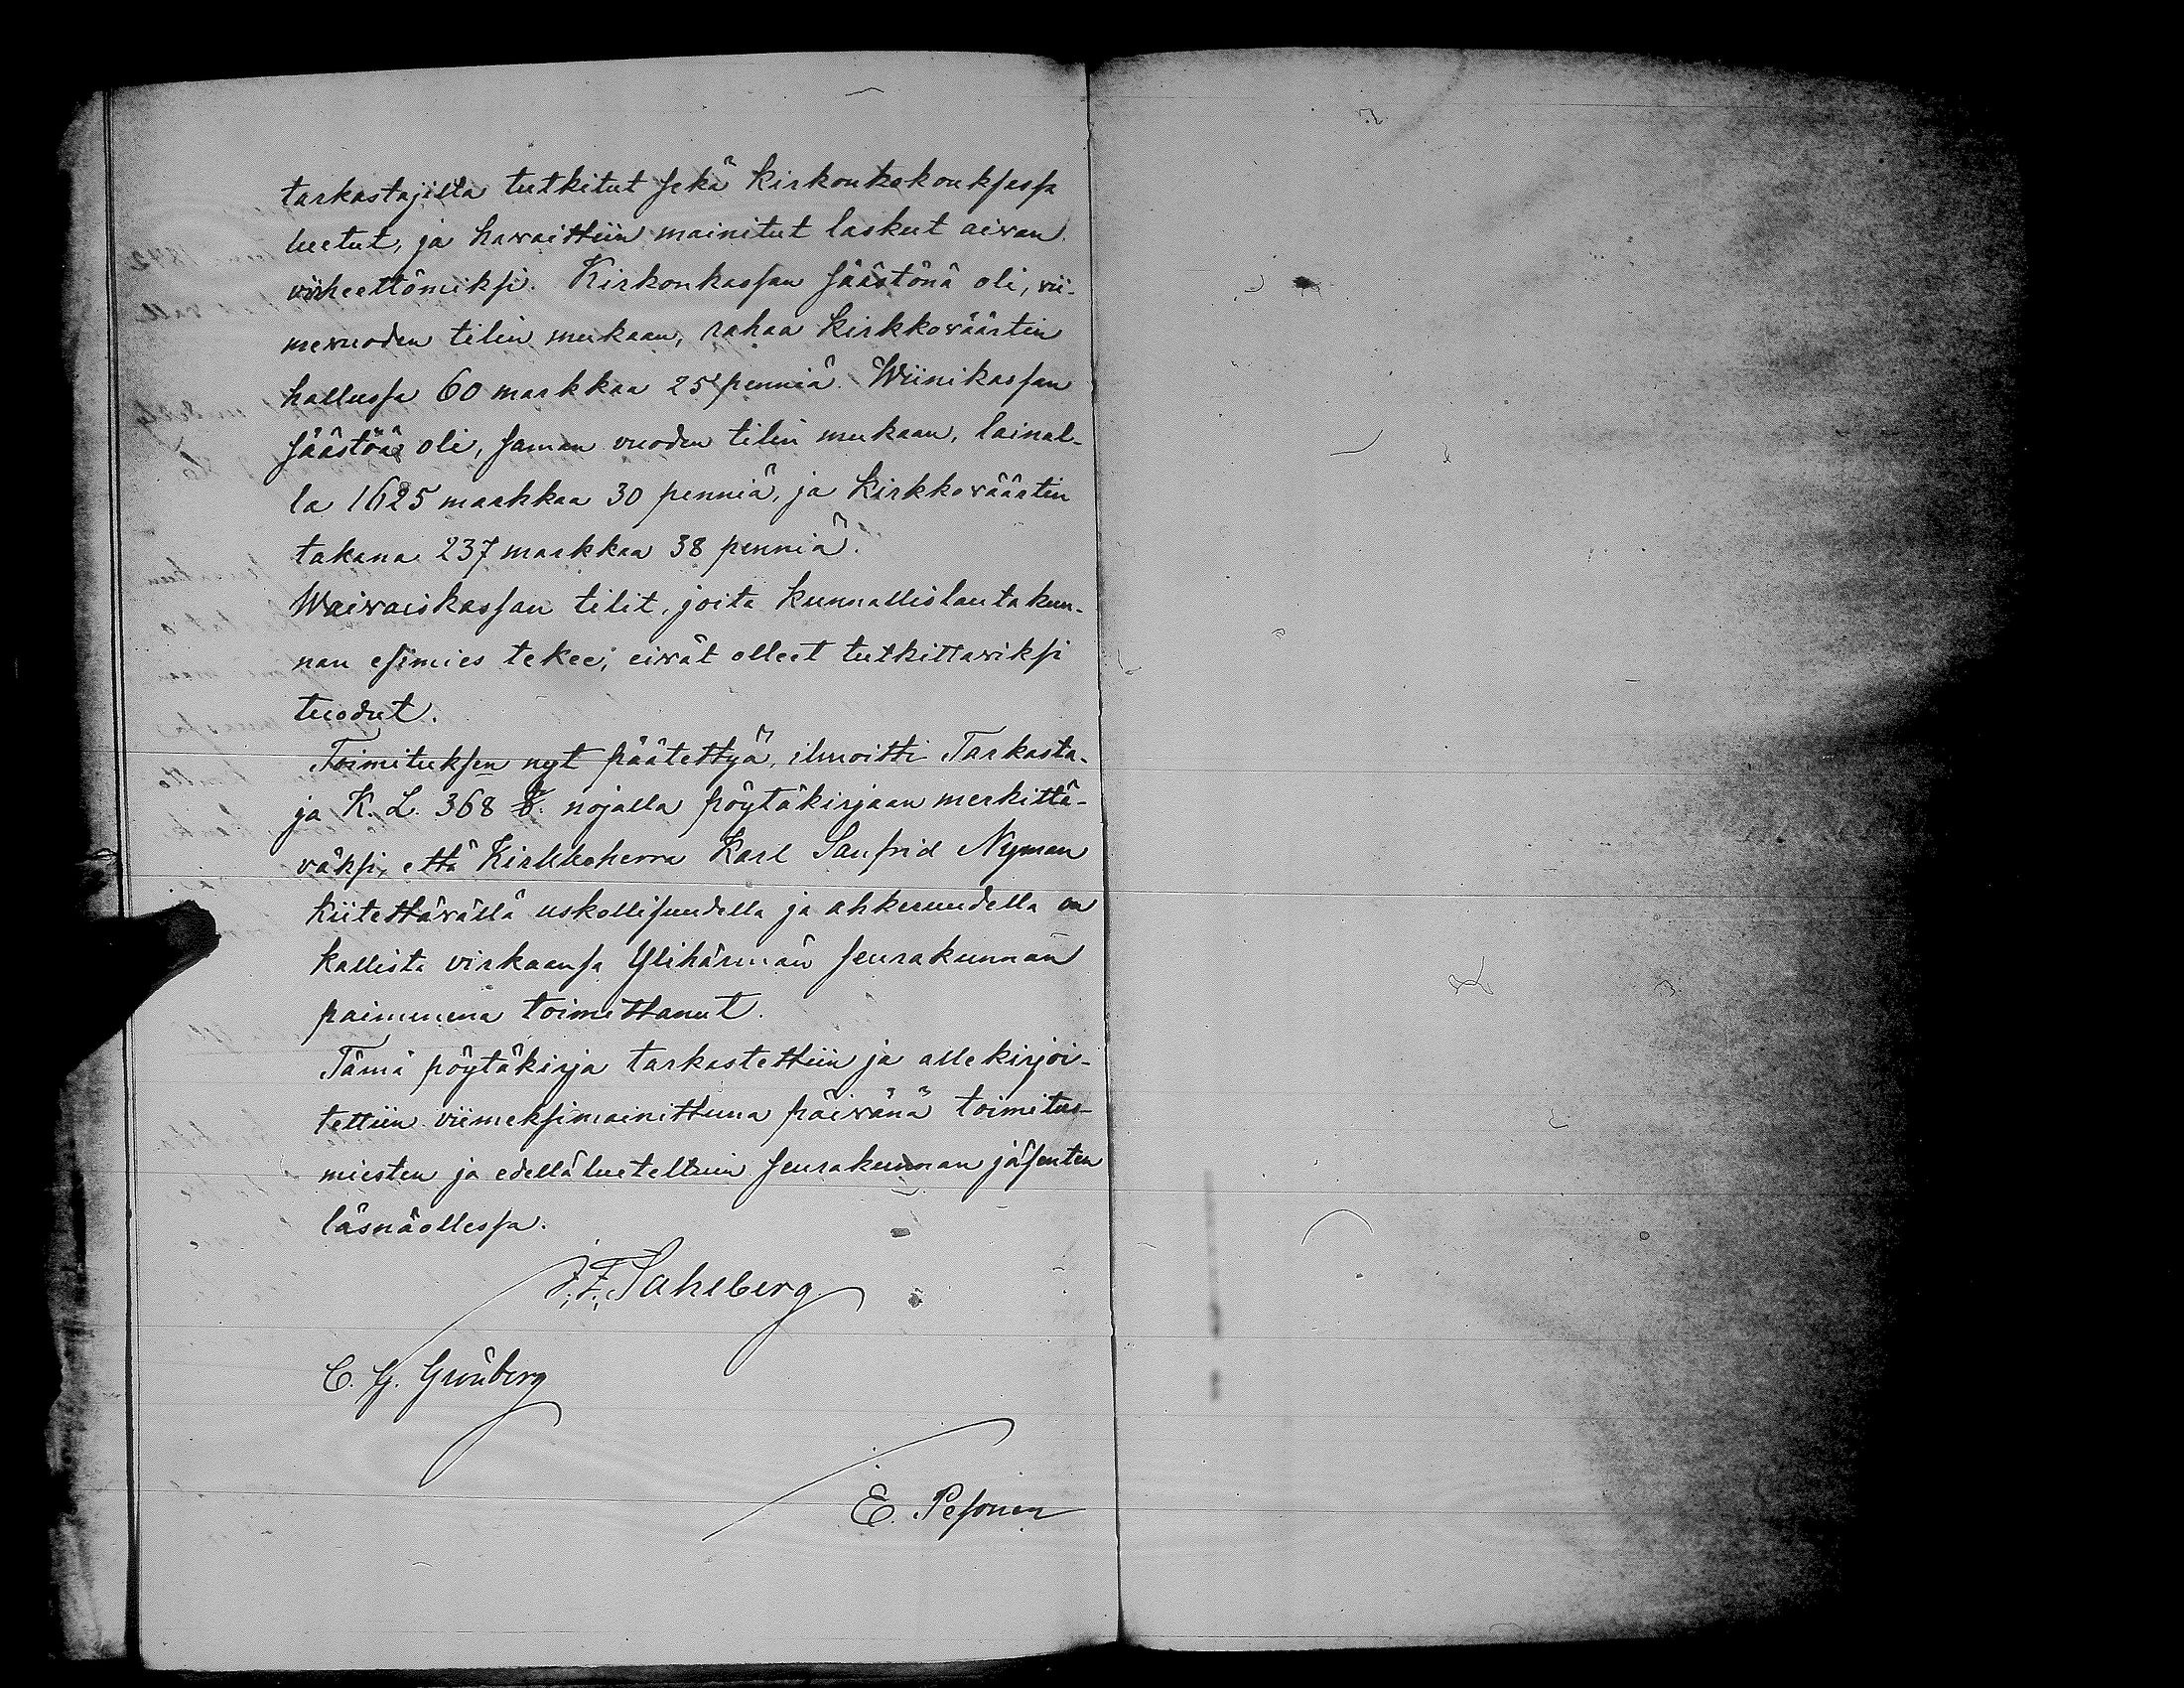 tarkastajilta tutkitut sekä kirkonkokouksessa
luetut, ja havaittiin mainitut laskut aivan
virheettömiksi. Kirkonkassan säästönä oli, vii-
mevuoden tilin mukaan, rahaa kirkkoväärtin
hallussa 60 markkaa 25 penniä. Wiinikassan
säästöä oli, saman vuoden tilin mukaan, lainal-
la 1625 markkaa 30 penniä, ja kirkkoväärtin
takana 237 markkaa 38 penniä.
Waivaiskassan tilit, joita kunnallislautakun-
nan esimies tekee, eivät olleet tutkittaviksi
tuodut.
Toimituksen nyt päätettyä, ilmoitti Tarkasta-
ja K. L. 368 §. nojalla pöytäkirjaan merkittä-
väksi, että Kirkkoherra Karl Sanfrid Nyman
kiitettävällä uskollisuudella ja ahkeruudella on
kallista virkaansa Ylihärmän seurakunnan
paimenena toimittanut.
Tämä pöytäkirja tarkastettiin ja allekirjoi-
tettiin viimeksimainittuna päivänä toimitus-
miesten ja edellä lueteltuin seurakunnan jäsenten
läsnäollessa.
J. F. Sahlberg
C. G. Grönberg
E. Pesonen